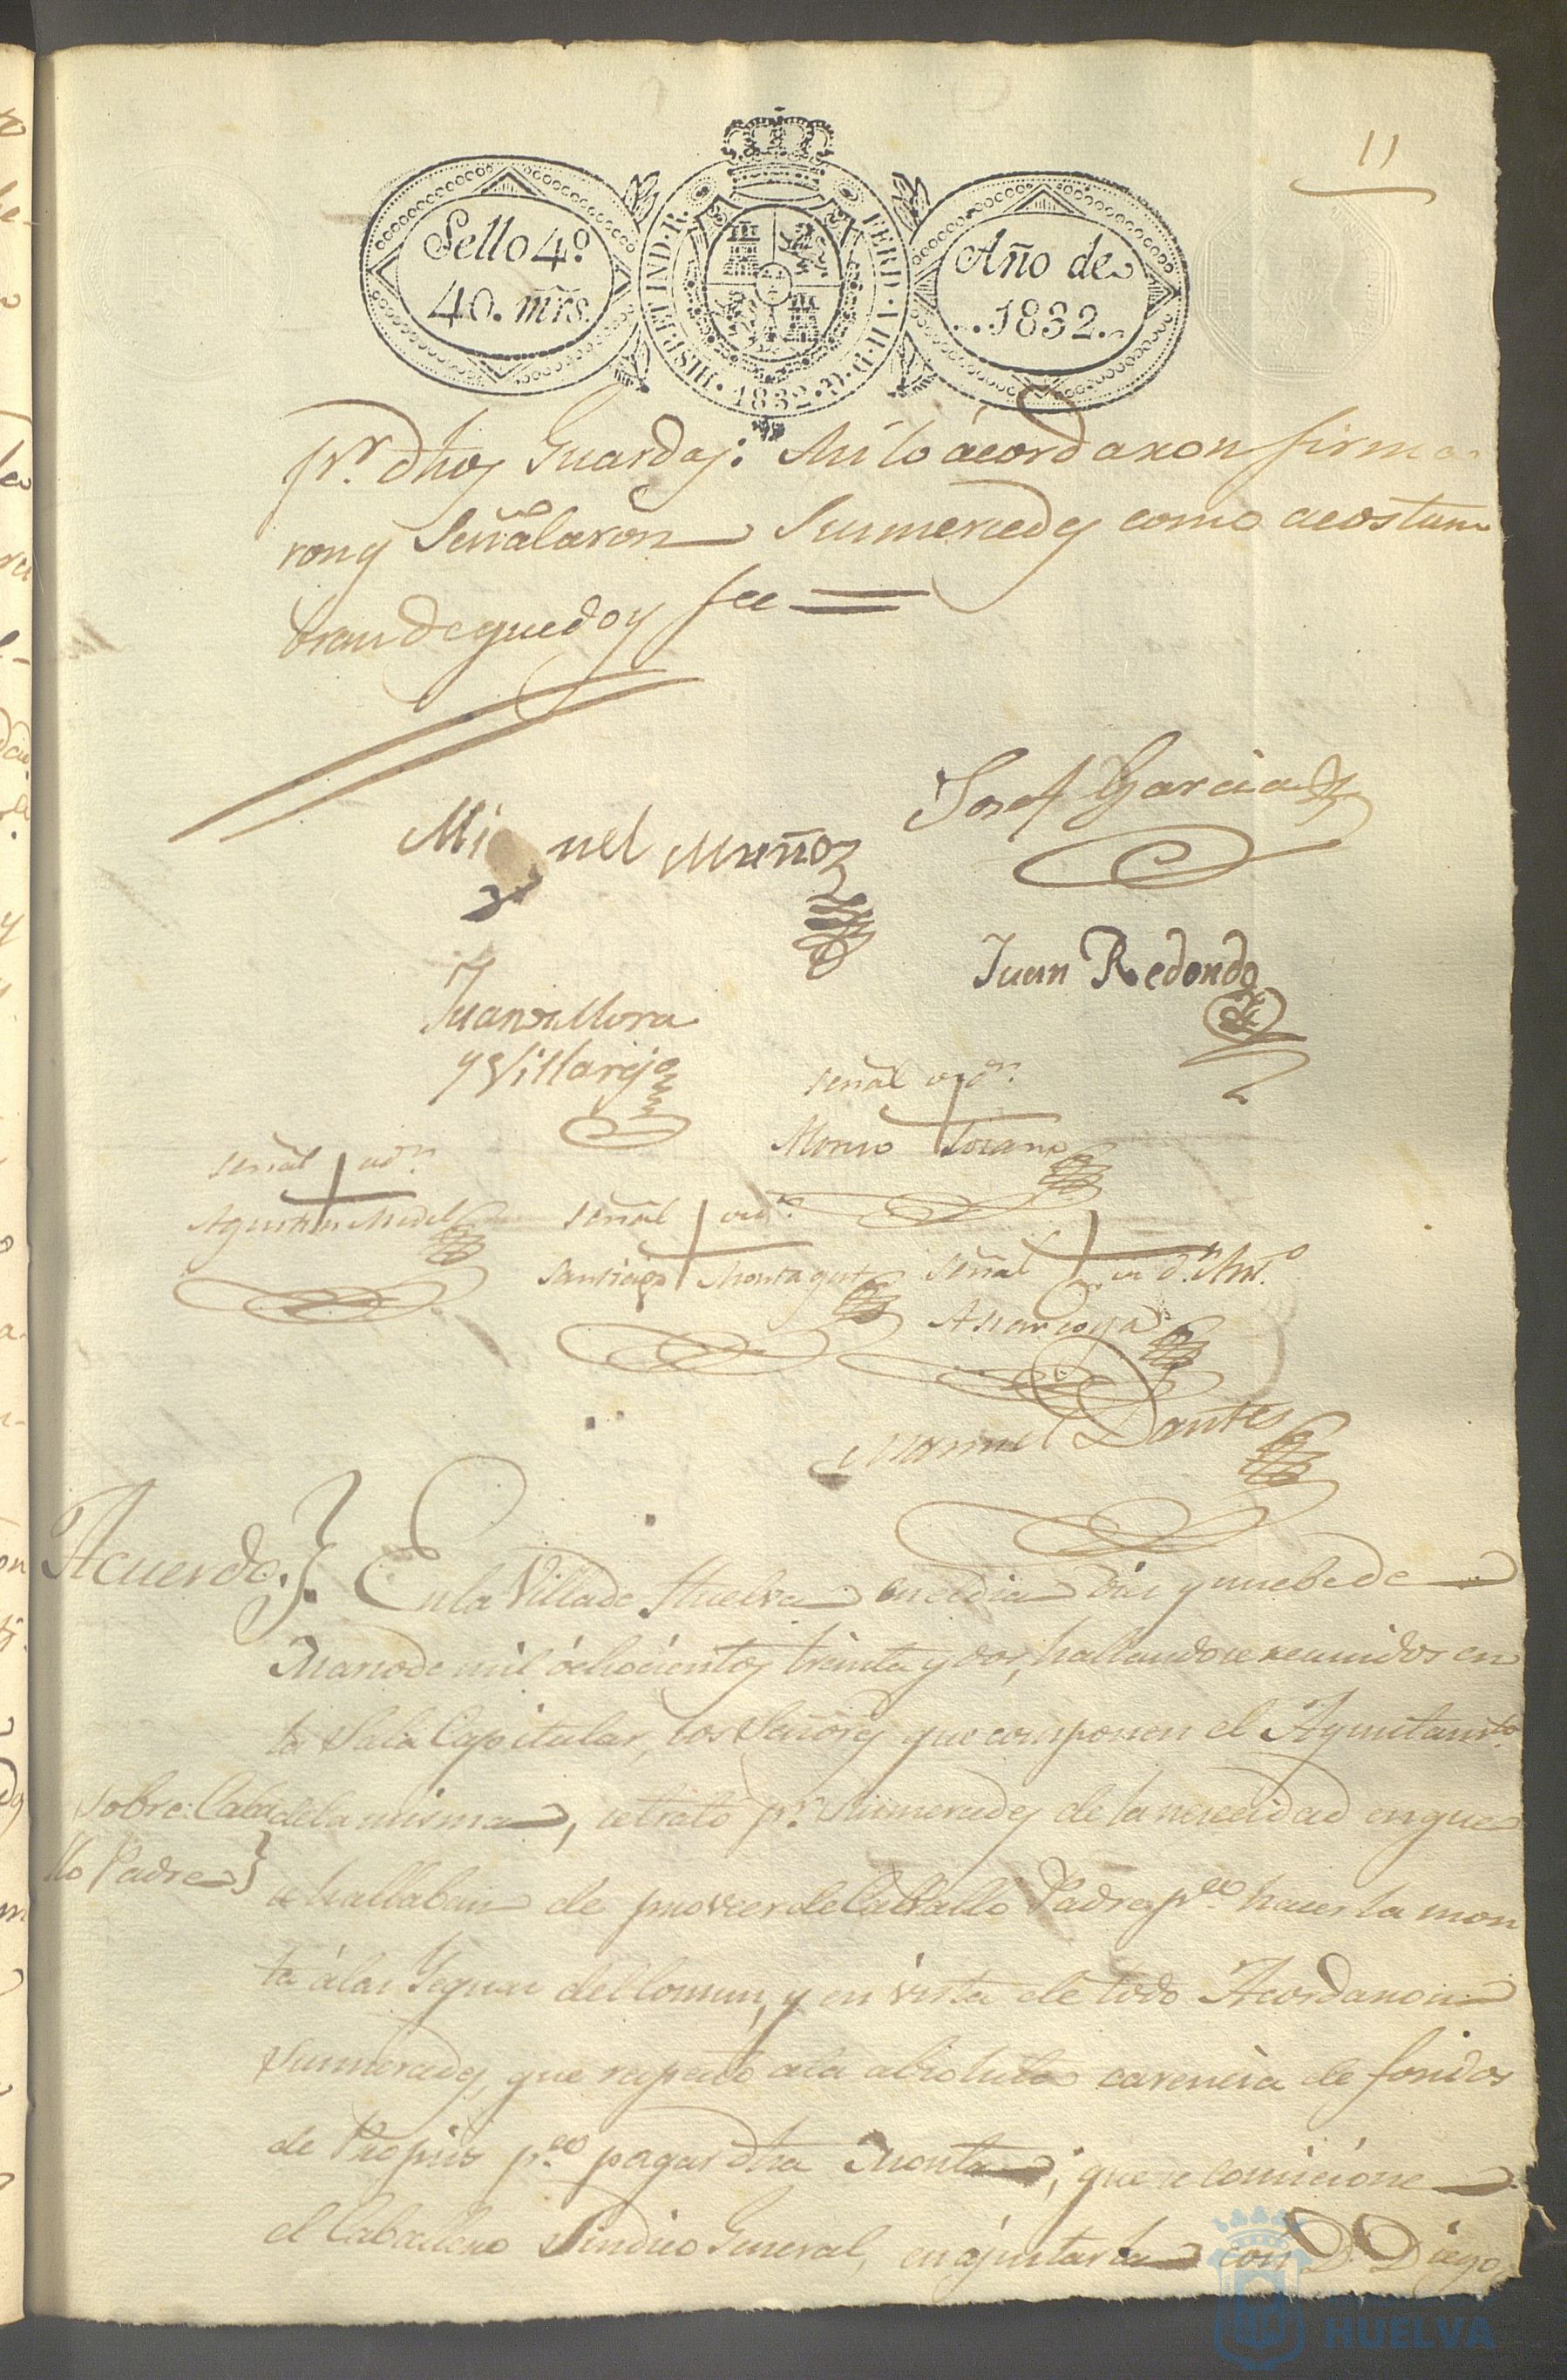 11
Sello 4º.
40. mrs.
HISP. ET IND. R. FERD. VII. D. G. 1832
Año de
1832.
pr. dhos Guardas: Asi lo ácordaron firma
ron y Señálaron Sumercedes como acostum
bran de que doy fee =
Josef Garcia
Miguel Muñoz
Juan Redondo
Juan de Mora
y Villarejo
señal de Dn.
Alonso
señal de Dn.
Agustin Medel
señal de Dn.
Santiago Montagut
señal de Dn. Anto.
Manuel Dantes
Acuerdo. En la Villa de Huelva en el dia diez y nuebe de
Marzo de mil óchocientos treinta y dos, hallandose reunidos en
la Sala Capitular, los Señores que componen el Ayuntamto.
Sobre Caba
de la misma, se trató pr. Sumercedes de la necesidad en que
llo Padre
se hallaban de proveer de Caballo Padre pa. hacer la mon
ta á las Yeguas del Comun, y en vista de todo Acordaron
Sumercedes, que respecto á la absoluta carencia de fondos
de Propios pa. pagar dha Monta; que se comicione
el Caballero Sindico General, en ájustarla con Dn. Diego
HUELVA